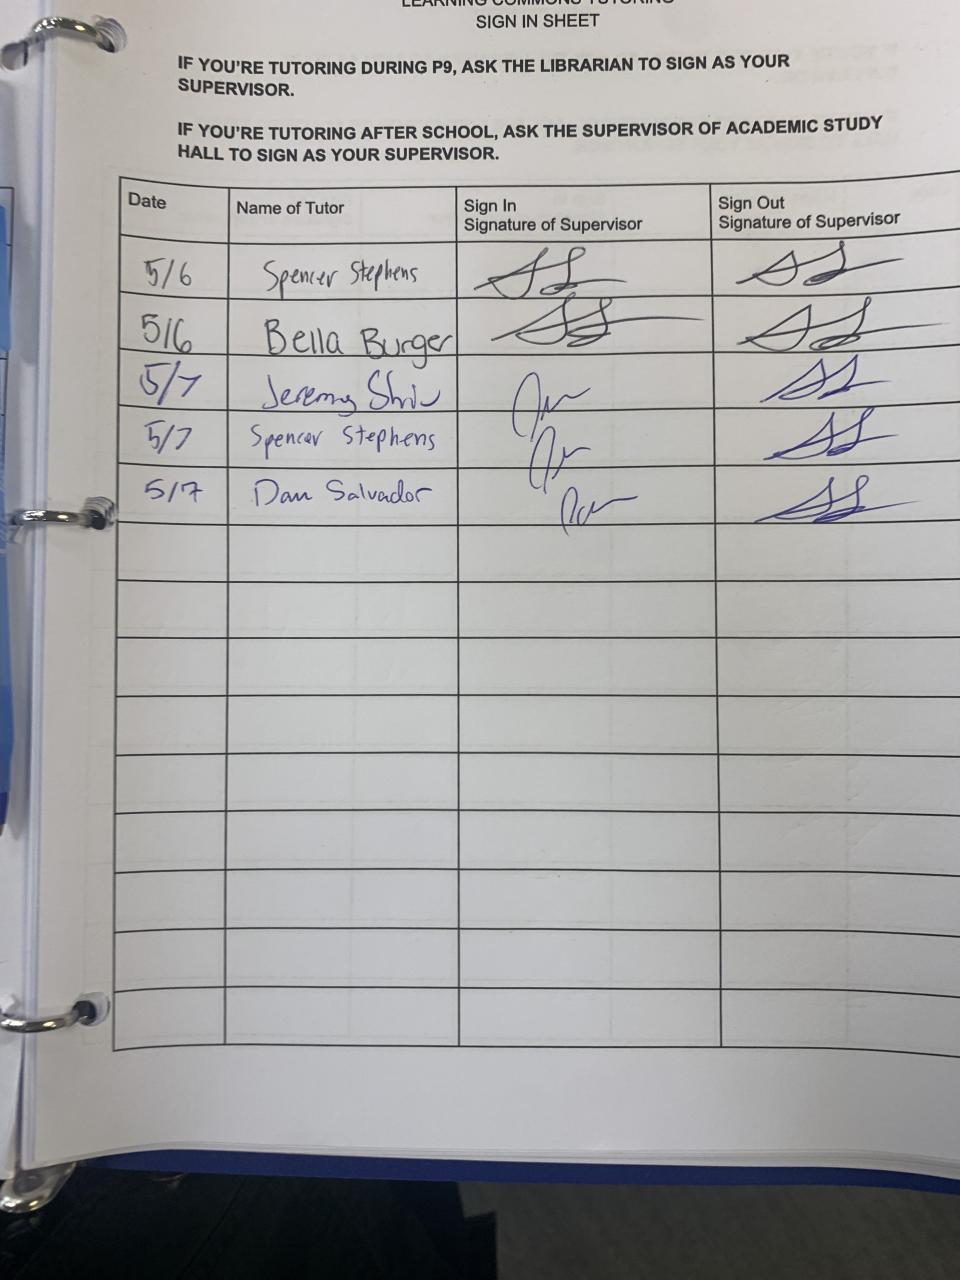 LEARNING COMMONS TUTORING
SIGN IN SHEET
IF YOU'RE TUTORING DURING P9, ASK THE LIBRARIAN TO SIGN AS YOUR
SUPERVISOR.
IF YOU'RE TUTORING AFTER SCHOOL, ASK THE SUPERVISOR OF ACADEMIC STUDY
HALL TO SIGN AS YOUR SUPERVISOR.
Date Name of Tutor Sign In Sign Out
Signature of Supervisor Signature of Supervisor
5/6 Spencer Stephens
5/6 Bella Burger
5/7 Jeremy
5/7 Spencer Stephens
5/7 Dan Salvador